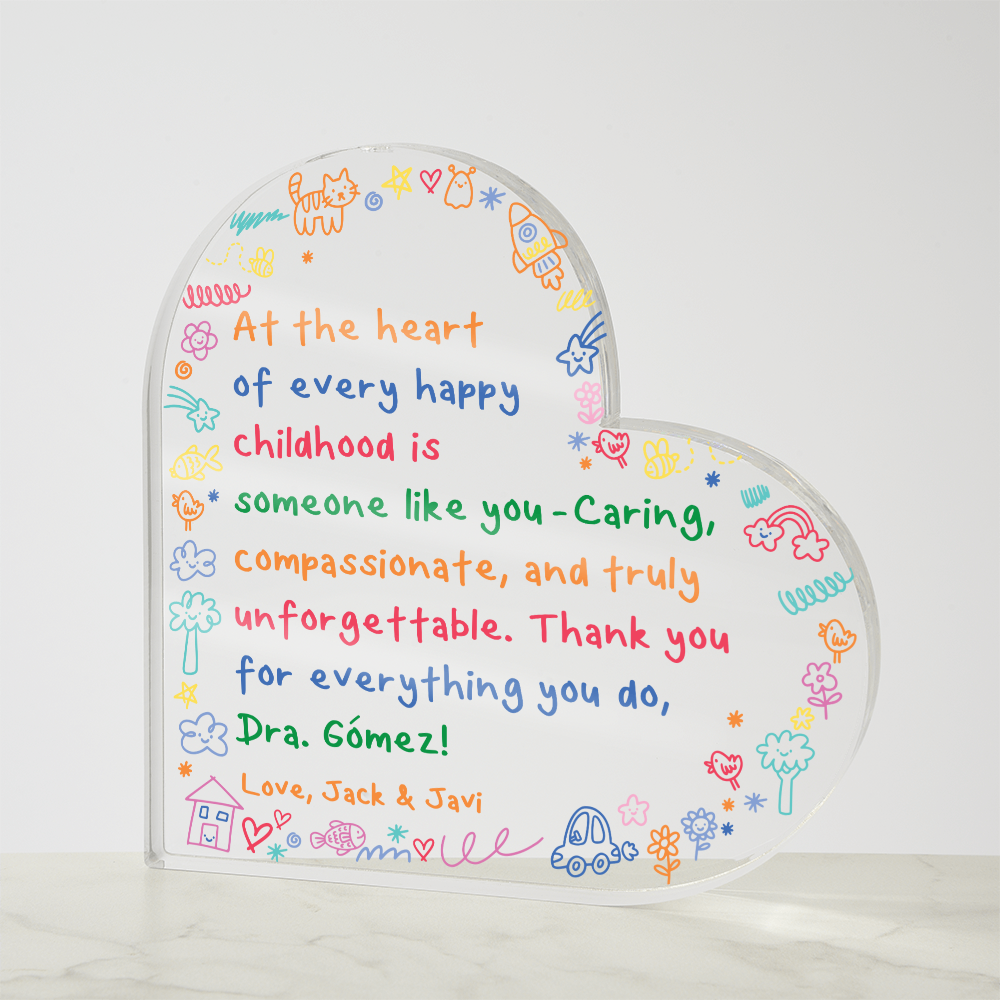 At the heart
of every happy
childhood is
someone like you - Caring,
compassionate, and truly
unforgettable. Thank you
for everything you do,
Dra. Gómez!
Love, Jack & Javi